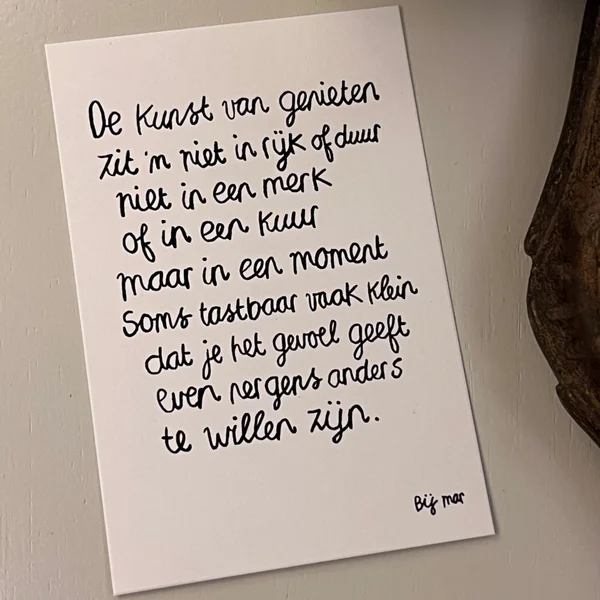 De kunst van genieten
zit 'm niet in rijk of duur
niet in een merk
of in een kuur
maar in een moment
soms tastbaar vaak klein
dat je het gevoel geeft
even nergens anders
te willen zijn.
Bij mar